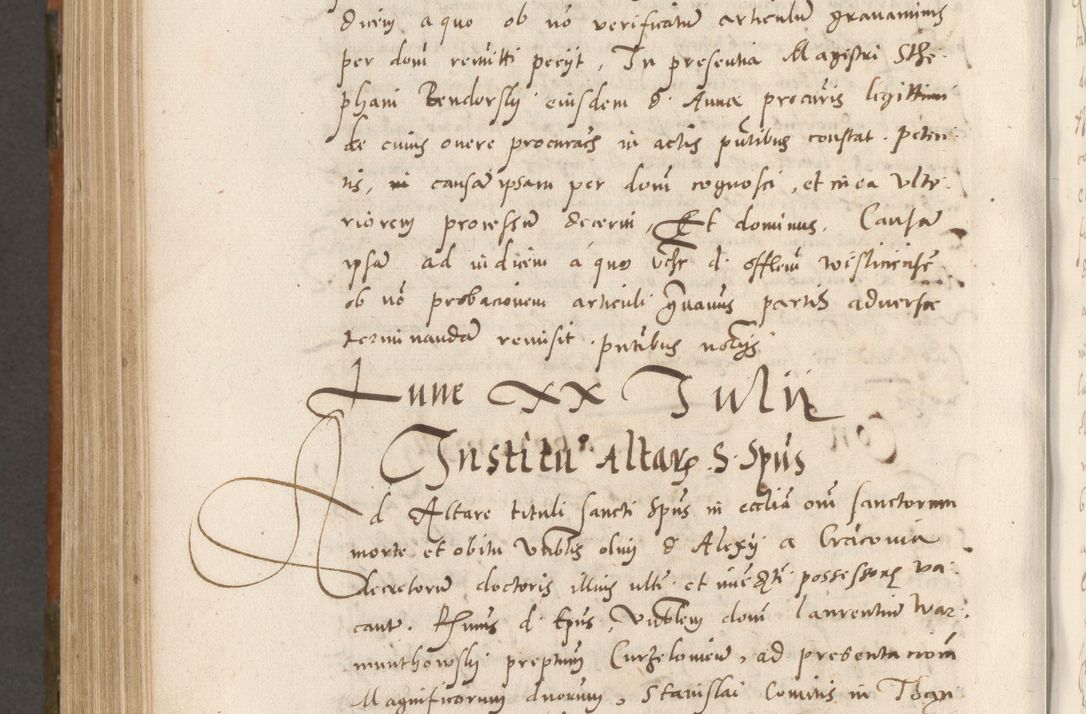 dicem a quo ob nō verificatum articulum gravaminis
per dom̄ remitti peciit, In presentia Magistri Ste
phani Bendorsky eiusdem d. Annæ procur̄is legittimi
de cuius onere procurac̄s in actis pn̄tibus constat. Peten
tis, causam ipsam per dom̄ cognosci, et in ea Ulte
riorem processum decerni, Et dominus, Causam
ipsam ad iudicem a quo d. offlem̄ Wisliciens̄e
ob nō probacionem articuli gravaminis partis adversæ
terminandam remisit. pn̄tibus notar̄ys
Lune XX Julii
Institu° Altar̄ S. Sp̄us
Ad Altare tituli sancti Sp̄us in eccl̄ia om̄ sanctorum
morte et obitu Ven̄blis olim d Alexij a Cracovia
decretorum doctoris illius ult̄ et possessoris va
cant̄. R̄mus d. Ep̄us, Ven̄blem dom̄ Laurentium War
munthowsky prep̄tum Curzeloviens̄, ad presentacionem
Magnificorum duorum, Stanislai Comitis in